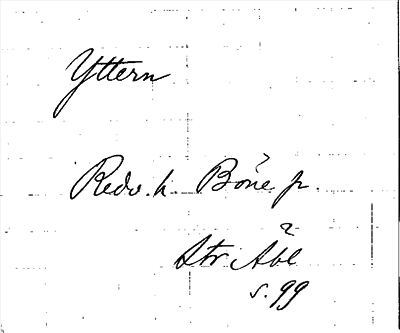 Yttern
Redv. h. Böne sn.
Str Åbl
s. 99